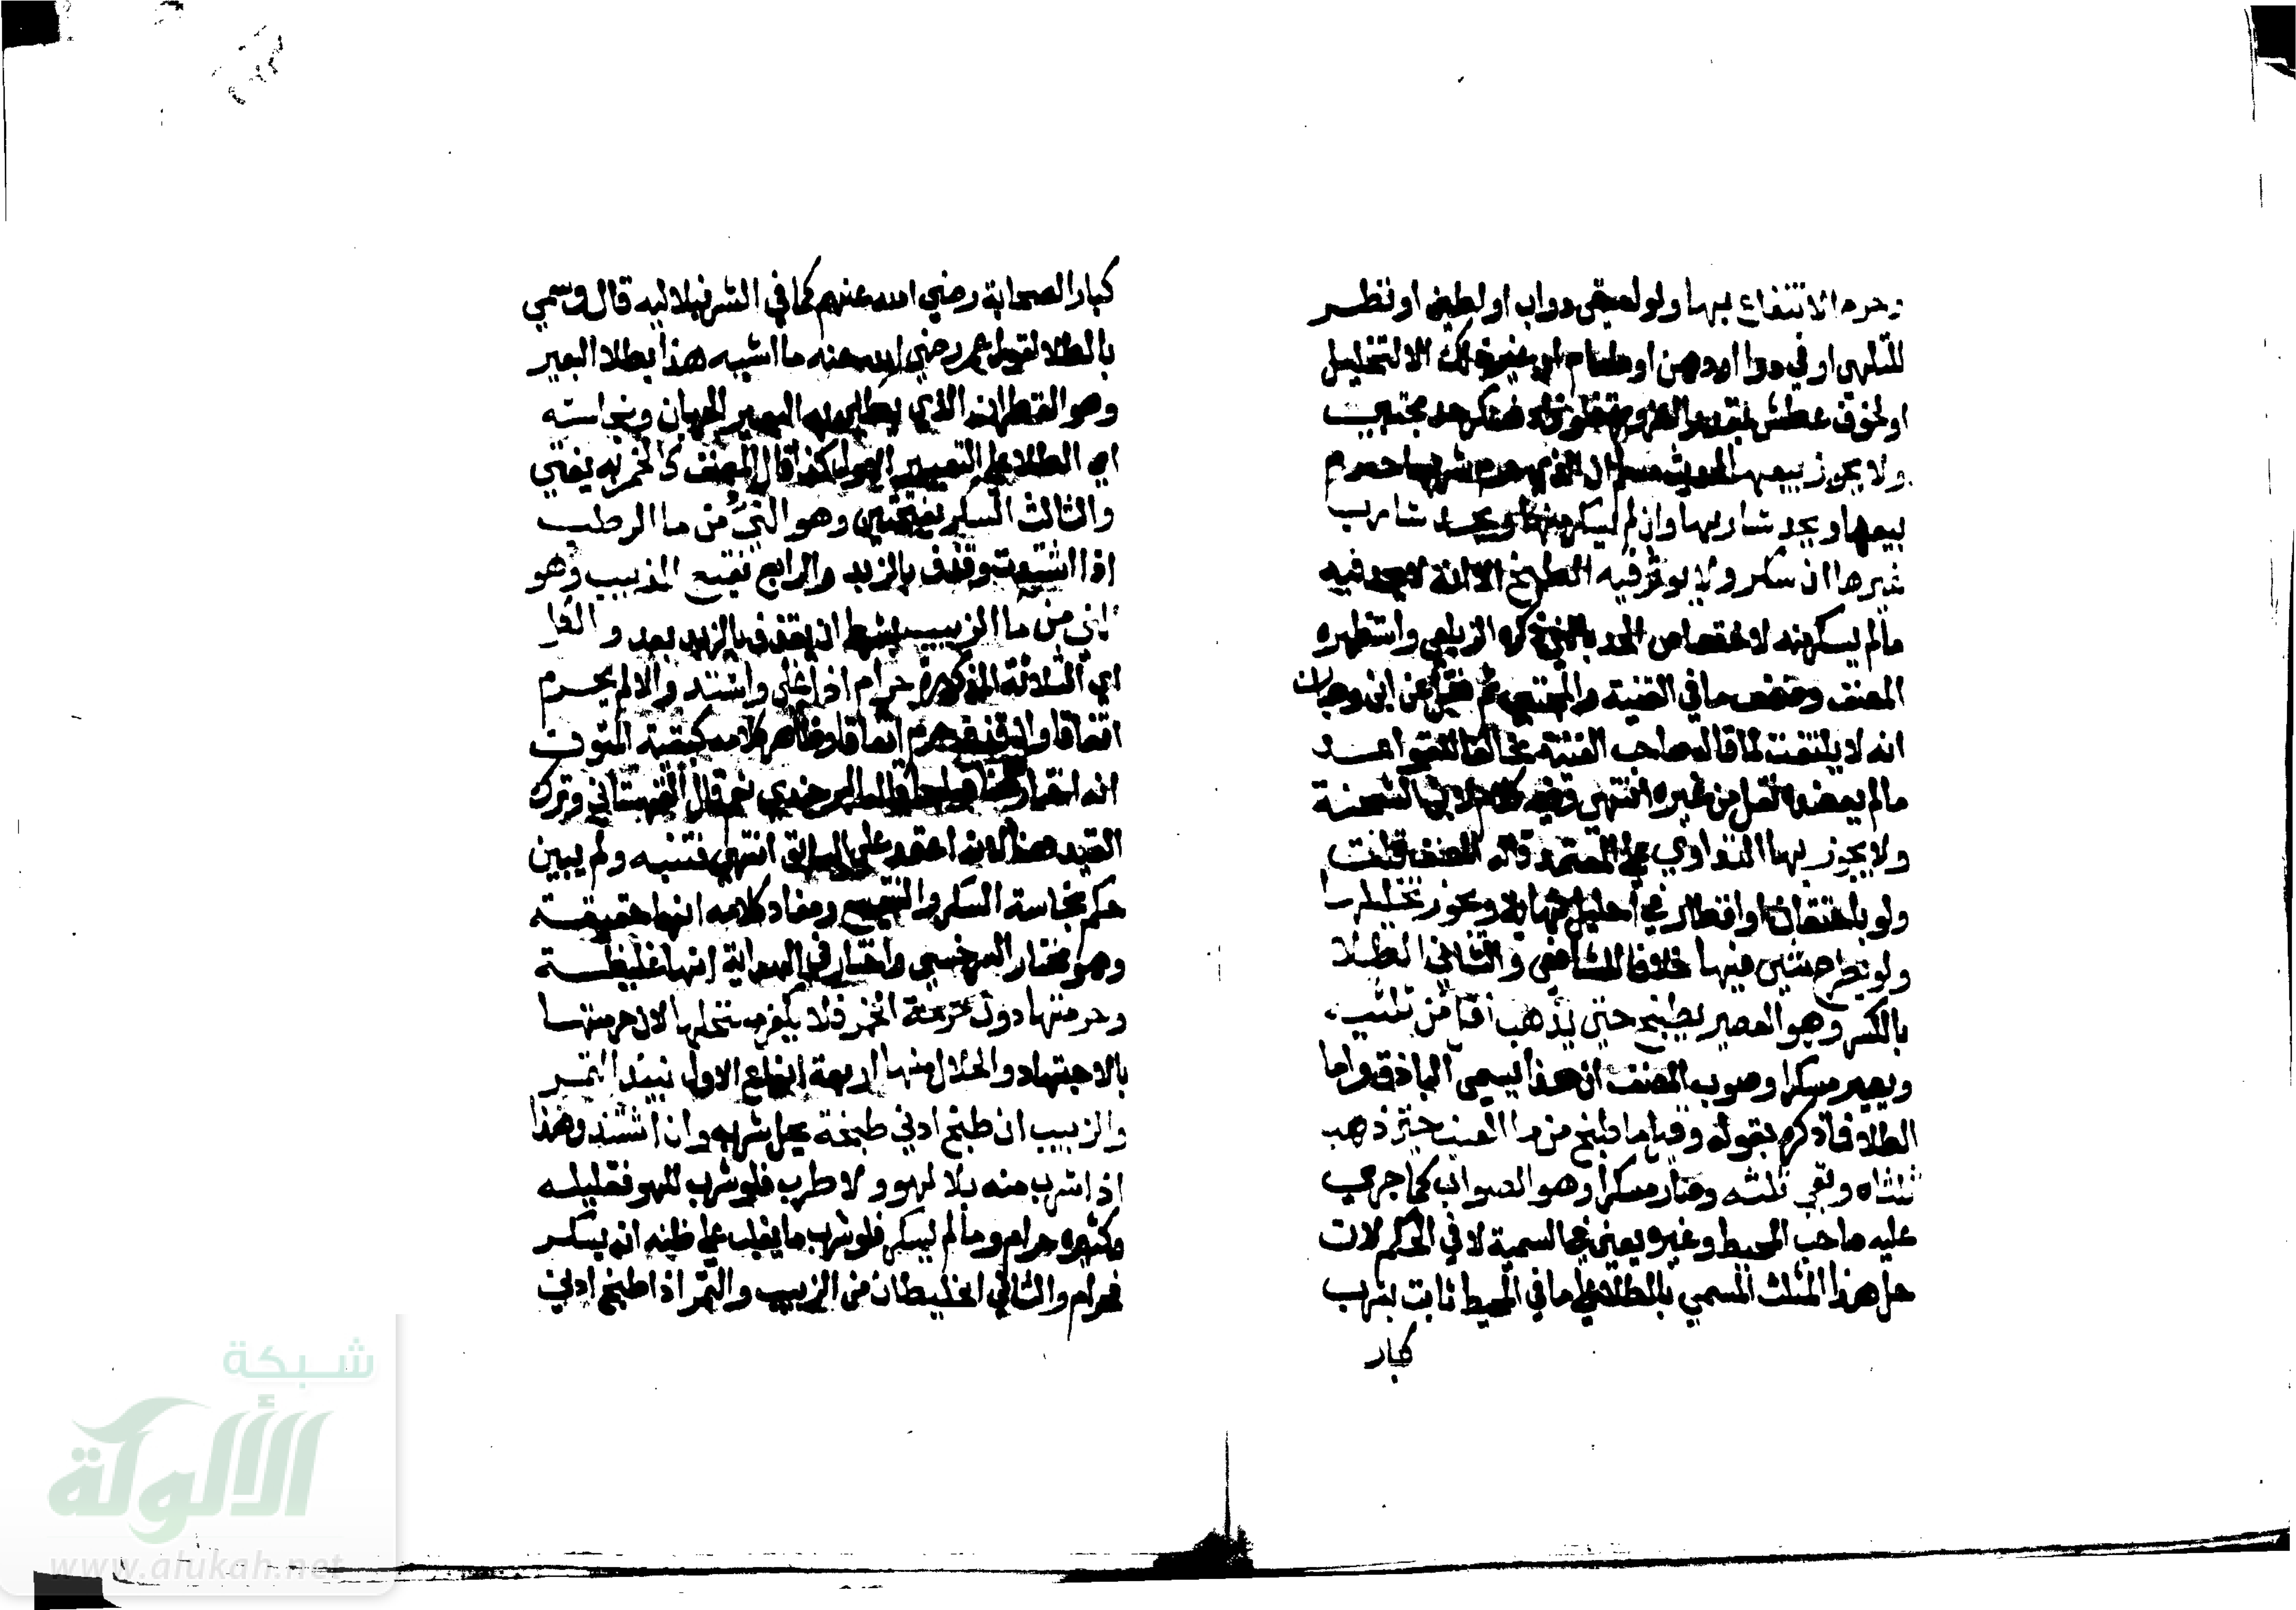 وحرم الانتفاع بها ولو لسقي دواب او لطين او نظر
للتلهي او في دوا او دهن او طعام او غير ذلك الا لتخليل
او لخوف عطش بقدر الضرورة فلو زاد فسكر حد مجتبى
ولا يجوز بيعها لحديث مسلم ان الذي حرم شربها حرم
بيعها ويحد شاربها وان لم يسكر منها ويحد شارب
غيرها ان سكر ولا يوثر فيه الطبخ الا انه لا يحد فيه
مالم يسكر منه لاختصاص الحد بالني ذكره الزيلعي واستظهره
المصنف وضعف ما في القنية والمجتبى ثم نقل عن ابن وهبان
انه لا يلتفت لما قاله صاحب القنية مخالفا للقواعد
مالم يعضده نقل من غيره انتهى وفيه كلام لابن الشحنة
ولا يجوز بها التداوي على المعتمد قاله المصنف قلت
ولو باحتقان او اقطار في احليل نهاية ويجوز تخليلها
ولو بطرح شئ فيها خلافا للشافعي والثاني الطلا
بالكسر وهو العصير يطبخ حتى يذهب اقل من ثلثيه
ويصير مسكرا وصوب المصنف ان هذا يسمى الباذق واما
الطلا فما ذكره بقوله وقيل ما طبخ من ما العنب حتى ذهب
ثلثاه وبقي ثلثه وصار مسكرا وهو الصواب كما جرى
عليه صاحب المحيط وغيره يعني في التسمية لا في الحكم لان
حل هذا المثلث المسمى بالطلا على ما في المحيط ثابت بشرب
كبار
كبار الصحابة رضي الله عنهم كما في الشرنبلاليه قال وسمي
بالطلا لقول عمر رضي الله عنه ما اشبه هذا بطلا البعير
وهو القطران الذي يطلى به البعير الجربان ونجاسته
اي الطلا على التفسير الاول كذا قال المصنف كالخمر به يفتى
والثالث السكر بفتحتين وهو الني من ما الرطب
اذا اشتد وقذف بالزبد والرابع نقيع الزبيب وهو
الني من ما الزبيب بشرط ان يقذف بالزبد بعد والكل
اي الثلاثة المذكورة حرام اذا غلى واشتد والا لم يحرم
اتفاقا وان قذف حرم اتفاقا وظاهر كلامه كبقية المتون
انه اختار ههنا قولهما قاله البرجندي نعم قال القهستاني وترك
القيد هنا لانه اعتمد على السابق انتهى فتنبه ولم يبين
حكم نجاسة السكر والنقيع ومفاد كلامه انها خفيفة
وهو مختار السرخسي واختار في الهداية انها غليظة
وحرمتها دون حرمة الخمر فلا يكفر مستحلها لان حرمتها
بالاجتهاد والحلال منها اربعة انواع الاول نبيذ التمر
والزبيب ان طبخ ادنى طبخة يحل شربه وان اشتد وهذا
اذا شرب منه بلا لهو ولا طرب فلو شرب للهو فقليله
وكثيره حرام وما لم يسكر فلو شرب ما يغلب على ظنه انه يسكر
فحرام والثاني الخليطان من الزبيب والتمر اذا طبخ ادنى
شبكة
الألوكة
www.alukah.net